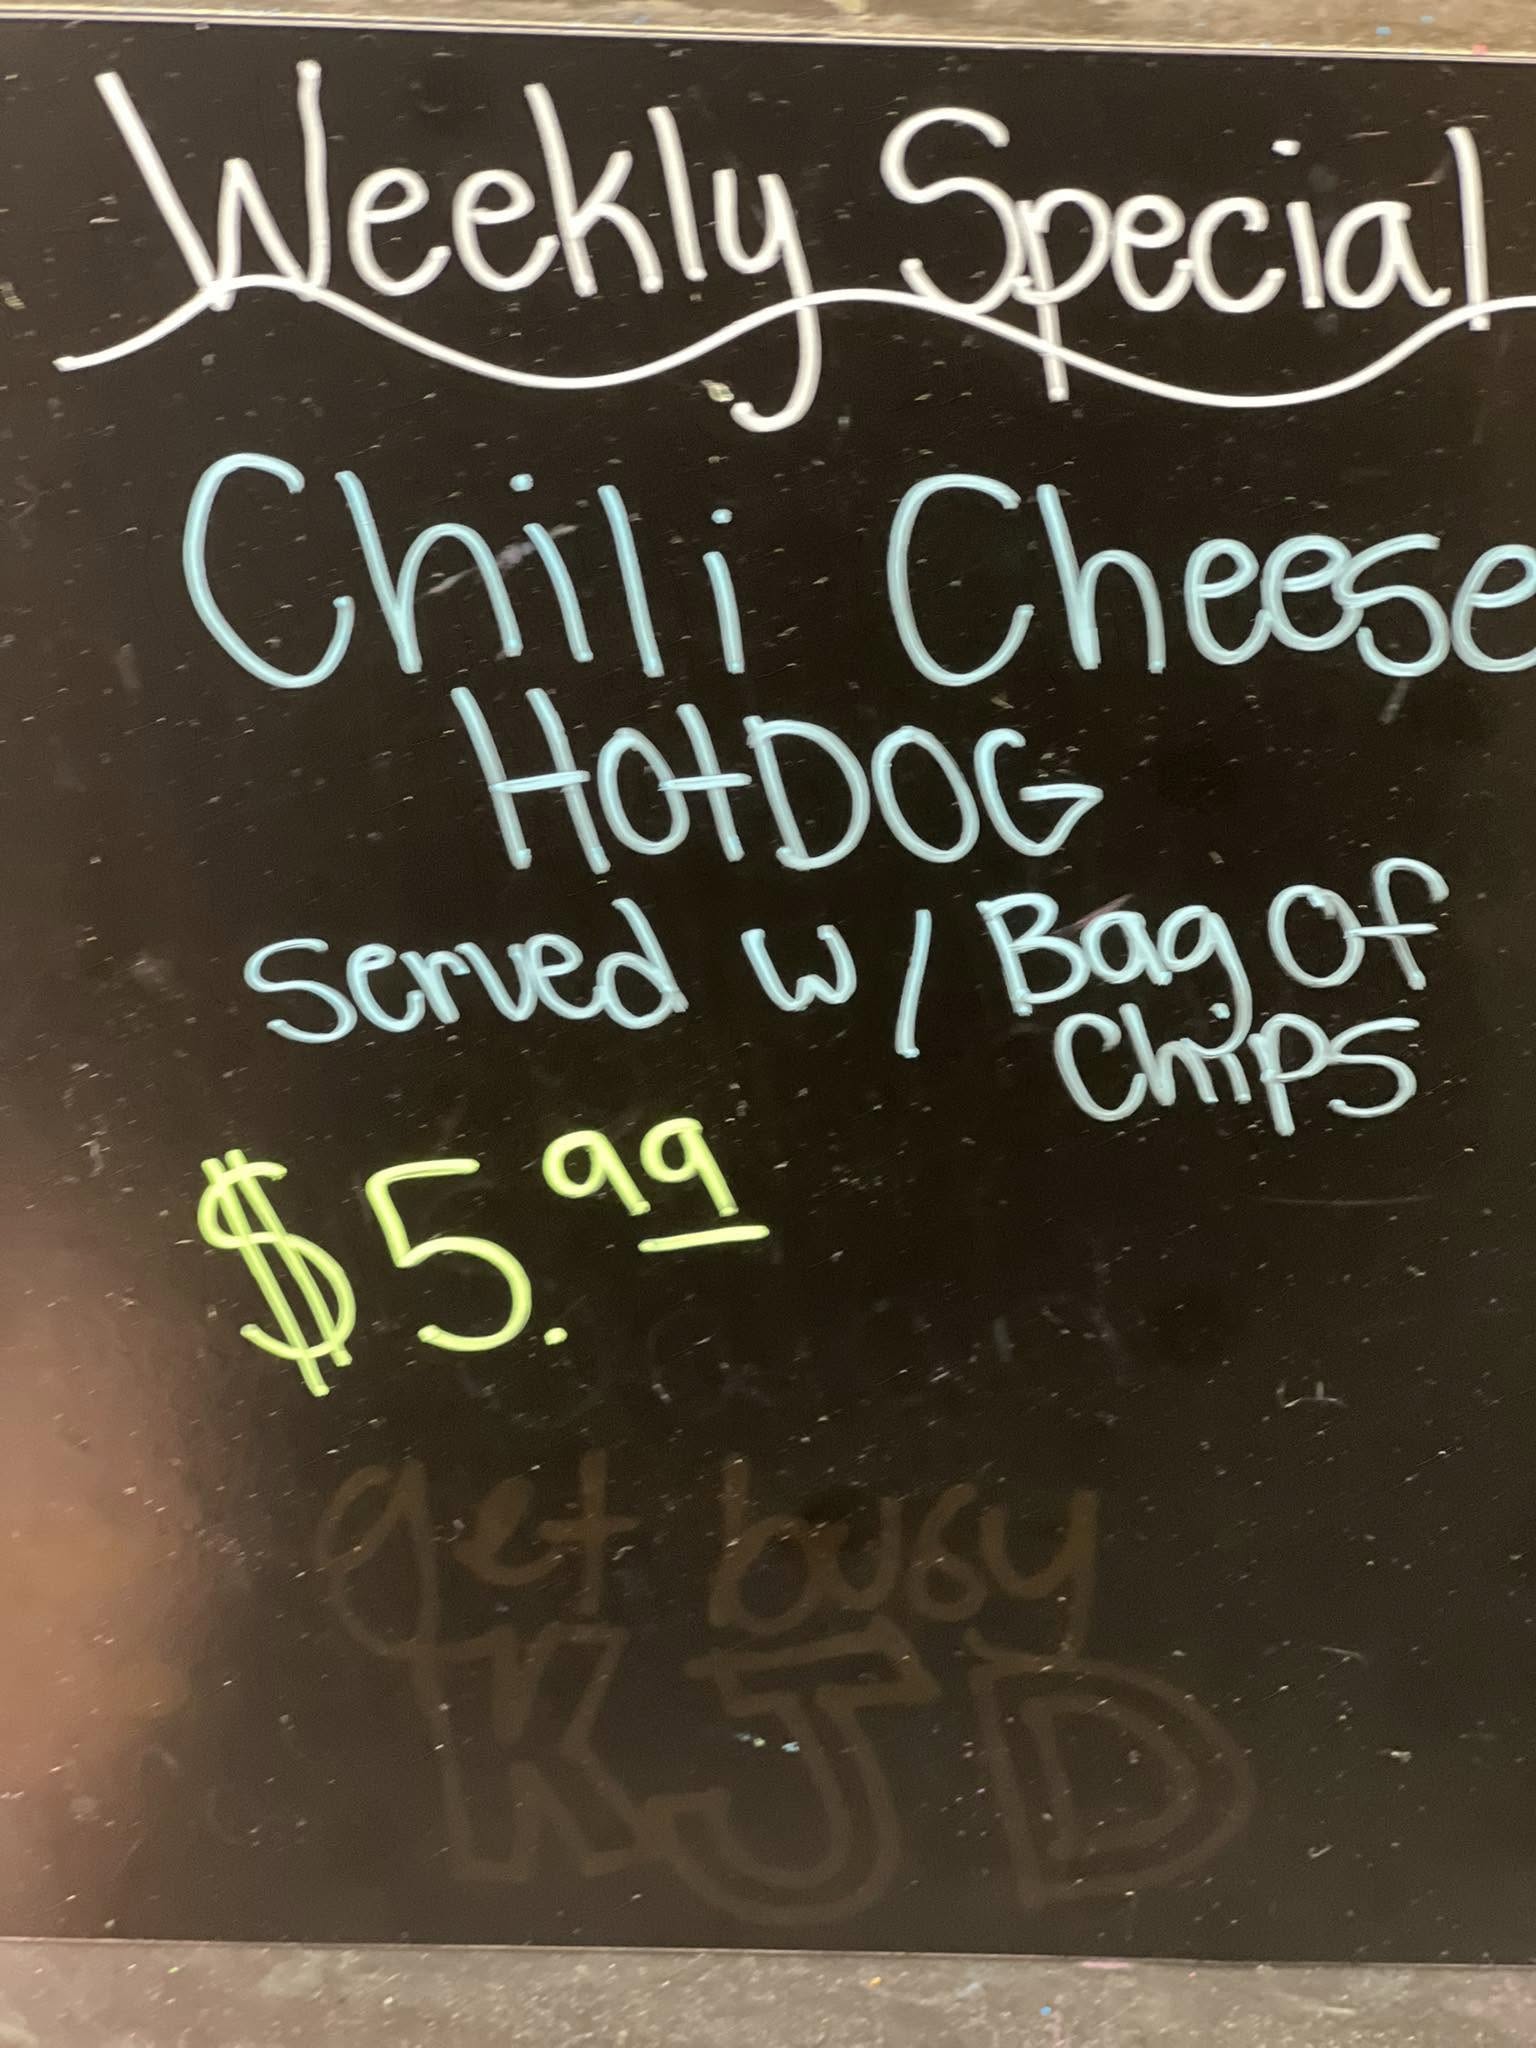 Weekly Special
Chili Cheese
HotDOG
served w/ Bag Of
Chips
$5.99
get busy
KJD